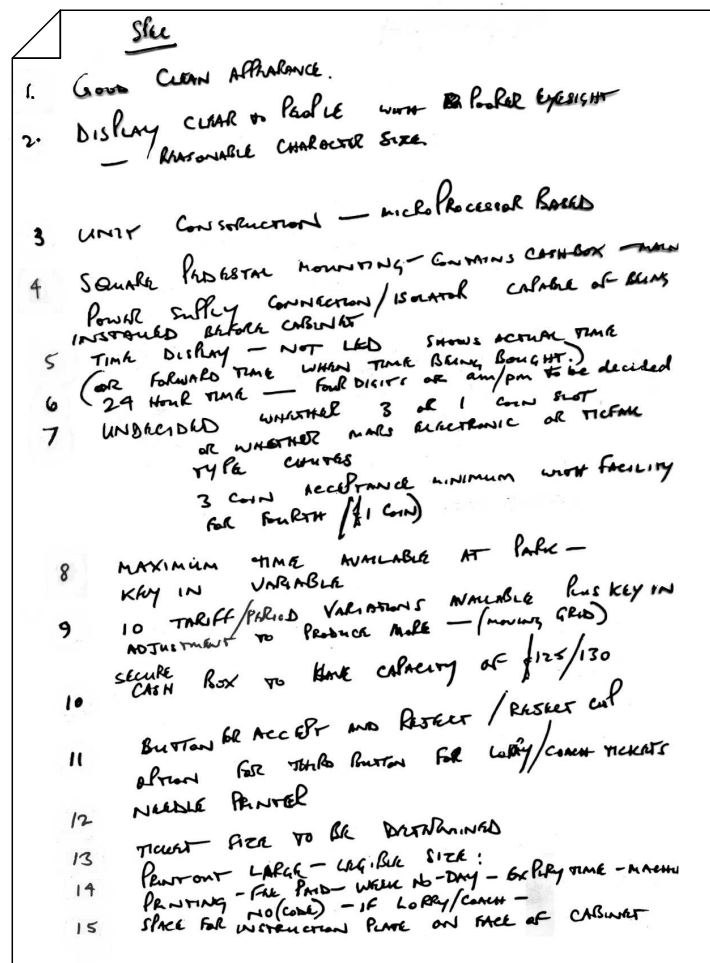 Spec
1. GOOD CLEAN APPEARANCE.
2. DISPLAY CLEAR TO PEOPLE WITH POORER EYESIGHT
— REASONABLE CHARACTER SIZE.
3 UNIT CONSTRUCTION — MICROPROCESSOR BASED
4 SQUARE PEDESTAL MOUNTING - CONTAINS CASHBOX - MAIN
POWER SUPPLY CONNECTION/ISOLATOR CAPABLE OF BEING
INSTALLED BEFORE CABINET
5 TIME DISPLAY - NOT LED SHOWS ACTUAL TIME
(OR FORWARD TIME WHEN TIME BEING BOUGHT.)
6 24 HOUR TIME — FOUR DIGITS OR am/pm to be decided
7 UNDECIDED WHETHER 3 OR 1 COIN SLOT
OR WHETHER MARS ELECTRONIC OR
TYPE CHUTES
3 COIN ACCEPTANCE MINIMUM WITH FACILITY
FOR FOURTH (£1 COIN)
8 MAXIMUM TIME AVAILABLE AT PARK —
KEY IN VARIABLE
9 10 TARIFF/PERIOD VARIATIONS AVAILABLE PLUS KEY IN
ADJUSTMENT TO PRODUCE MORE — (MOVING GRID)
10 SECURE CASH BOX TO HAVE CAPACITY OF £125/130
11 BUTTON FOR ACCEPT AND REJECT / REJECT CUP
OPTION FOR THIRD BUTTON FOR LORRY/COACH TICKETS
12 NEEDLE PRINTER
13 TICKET SIZE TO BE DETERMINED
PRINTOUT LARGE - LEGIBLE SIZE:
14 PRINTING - FEE PAID - WEEK NO - DAY - EXPIRY TIME - MACHINE
NO (CODE) - IF LORRY/COACH -
15 SPACE FOR INSTRUCTION PLATE ON FACE OF CABINET